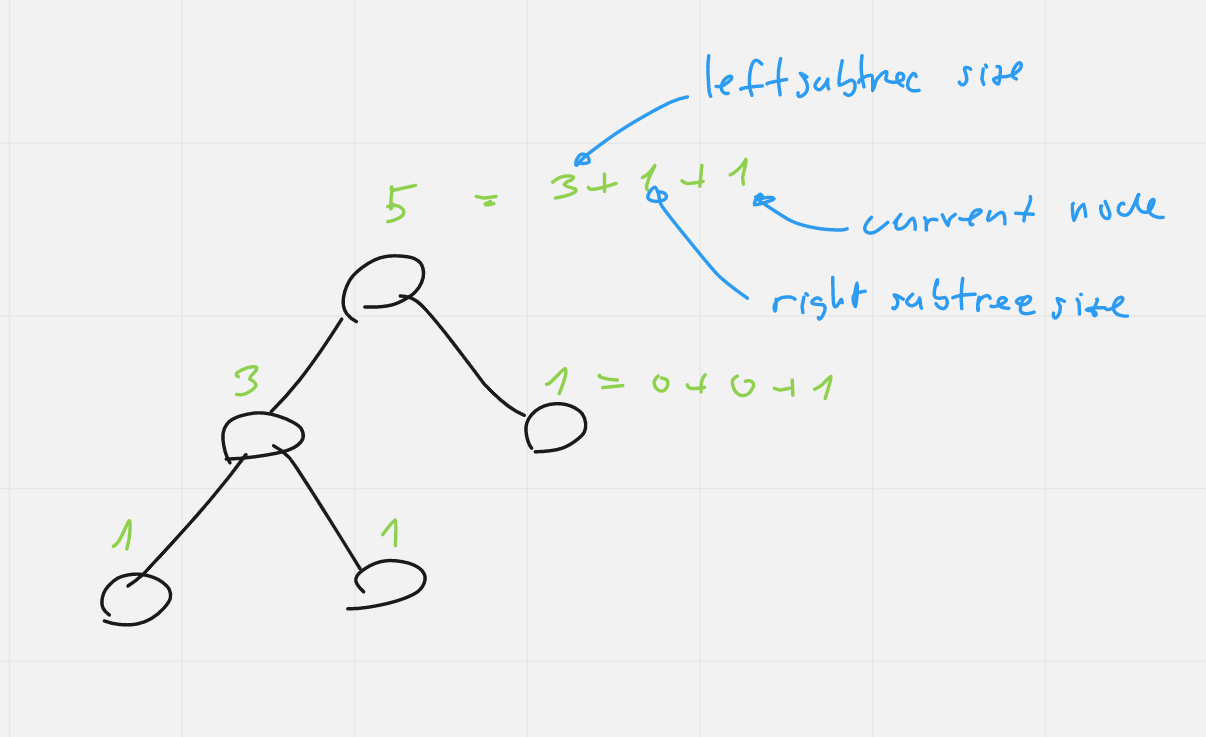 left subtree size
5 = 3 + 1 + 1
current node
right subtree size
3
1 = 0 + 0 + 1
1
1